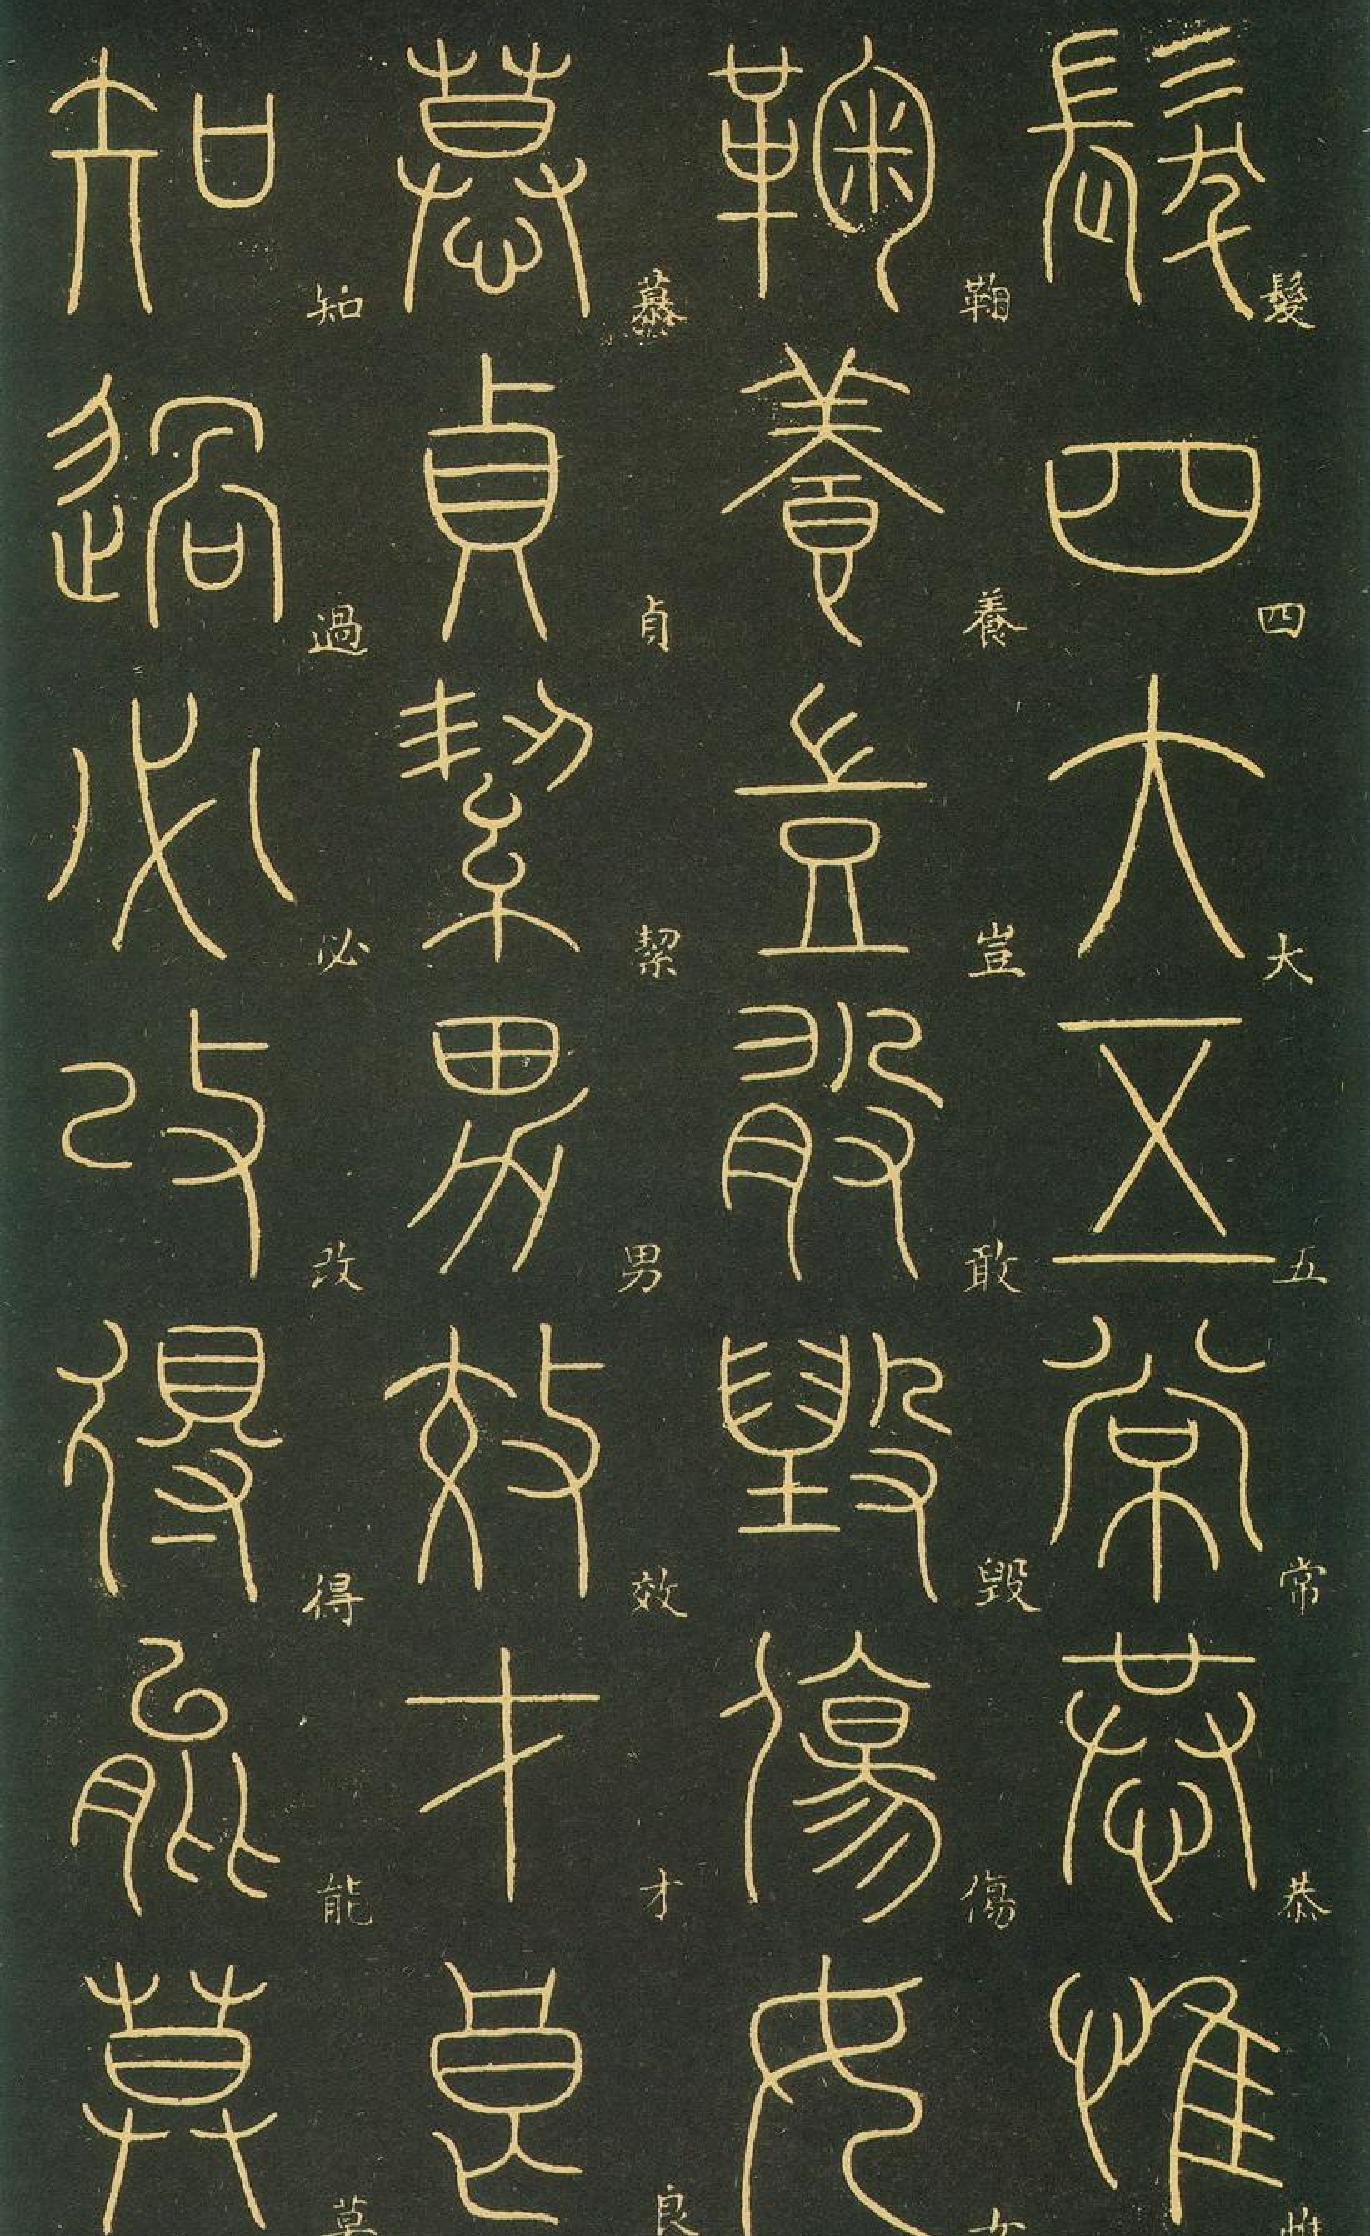 髮四大五常恭惟
鞠養豈敢毀傷女
慕貞絜男效才良
知過必改得能莫